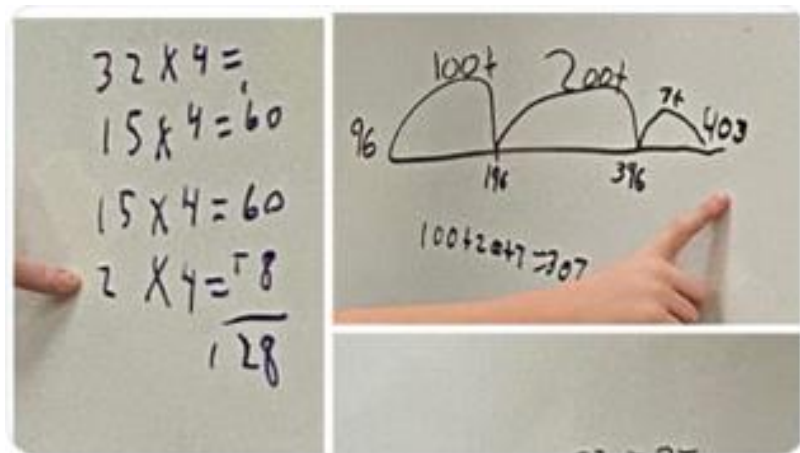 32 x 4 =
15 x 4 = 60
15 x 4 = 60
2 x 4 = +8
128
100+ 200+ 7+
96 403
196 396
100+200+7=307